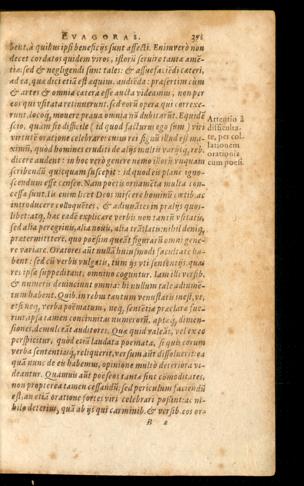 EVAGORAS.
bent, à quibus ipsi beneficijs sunt affecti. Enimverò non
decet cordatos quidem viros, istorũ servire tanta amẽ-
tiæ: sed & negligendi sunt tales: & assuefaciẽdi cæteri,
ad ea, quæ dici etiã est æquum, audiẽda: præsertim cùm
& artes & omnia cætera esse aucta videamus, non per
eos qui vsitata retinuerunt, sed eorũ opera qui correxe-
runt, loco q́; mouere praua omnia nũ dubitarũt. Equidẽ
scio, quam sit difficile (id quod facturus ego sum) vir
virtutẽ oratione celebrare:
ximũ, quod homines eruditi de alijs multis varijsq́;
dicere audent: in hoc verò genere nemo illorũ vnquam
scribendũ quicquam suscepit: id quod eis planè igno-
scendum esse censeo. Nam poetis ornamẽta multa con-
cessa sunt. Iis enim licet Deos miscere hominũ cœtib. ac
introducere colloquẽtes, & adiuuãtes in prælijs quos-
libet: atq́; hæc eadẽ explicare verbis non tantũ vsitatis,
sed alia peregrinis, alia nouis, alia trãslatis: nihil deniq́;
prætermittere, quo poësin queãt figurarũ omni gene-
re variare. Oratores aut nulla huiusmodi facultatẽ ha-
bent: sed cũ verbis vulgatis, tum ijs vti sentẽtijs, quas
res ipsa suppeditant, omnino coguntur. Iam illi versib.
& numeris deuinciunt omnia: hi nullum tale adiumẽ-
tum habent. Quib. in rebus tantum venustatis inest, vt,
etsi neq́; verba põematum, neq́; sentẽtiæ præclarè suc-
 ipsa tamen concinnitas numerorũ, aptaq́; dimen-
siones, demulceãt auditores. Qua quid valeãt, vel ex eo
perspicitur, quod etiã laudata poemata, si quis eorum
verba sententiasq́; reliquerit, versum aũt dissoluerit: ea
quã nunc de eis habemus, opinione multò deteriora vi-
deantur. Quamuis aũt poëseos tantæ sint cõmoditates,
non propterea tamen cessandũ: sed periculum faciendũ
est, an etiã oratione fortes viri celebrari possint: ac ni-
hilo deterius, quã ab ijs qui carminib. & versib. eos or-
B 2
Attentio à
difficulta-
te, per col-
lationem
orationis
cum poesi.